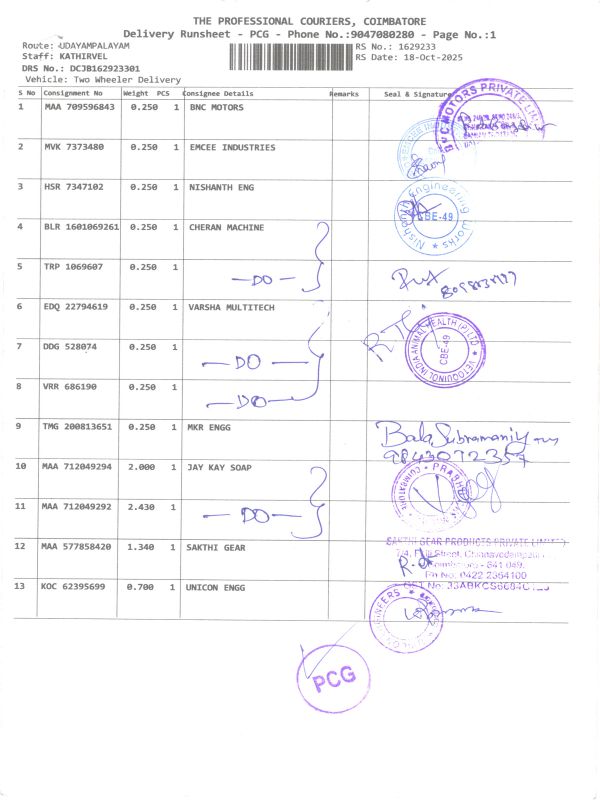 THE PROFESSIONAL COURIERS, COIMBATORE
Delivery Runsheet - PCG - Phone No.:9047080280 - Page No.:1
Route: UDAYAMPALAYAM
RS No.: 1629233
Staff: KATHIRVEL
RS Date: 18-Oct-2025
DRS No.: DCJB162923301
Vehicle: Two Wheeler Delivery
S No Consignment No Weight PCS Consignee Details Remarks Seal & Signature
1 MAA 709596843 0.250 1 BNC MOTORS
MOTORS PRIVATE
2 MVK 7373480 0.250 1 EMCEE INDUSTRIES
3 HSR 7347102 0.250 1 NISHANTH ENG
Nishanth Engineering Works
CBE-49
4 BLR 1601069261 0.250 1 CHERAN MACHINE
5 TRP 1069607 0.250 1 -DO-
6 EDQ 22794619 0.250 1 VARSHA MULTITECH
VETOQUINOL INDIA ANIMAL HEALTH (P) LTD
CBE-49
7 DDG 528074 0.250 1 -DO-
8 VRR 686190 0.250 1 -DO-
9 TMG 200813651 0.250 1 MKR ENGG
Bala Subramaniyam
9843072357
10 MAA 712049294 2.000 1 JAY KAY SOAP
11 MAA 712049292 2.430 1 -DO-
12 MAA 577858420 1.340 1 SAKTHI GEAR
SAKTHI GEAR PRODUCTS PRIVATE LIMITED
Street,
Coimbatore - 641 049.
Ph No: 0422 2364100
13 KOC 62395699 0.700 1 UNICON ENGG
PCG